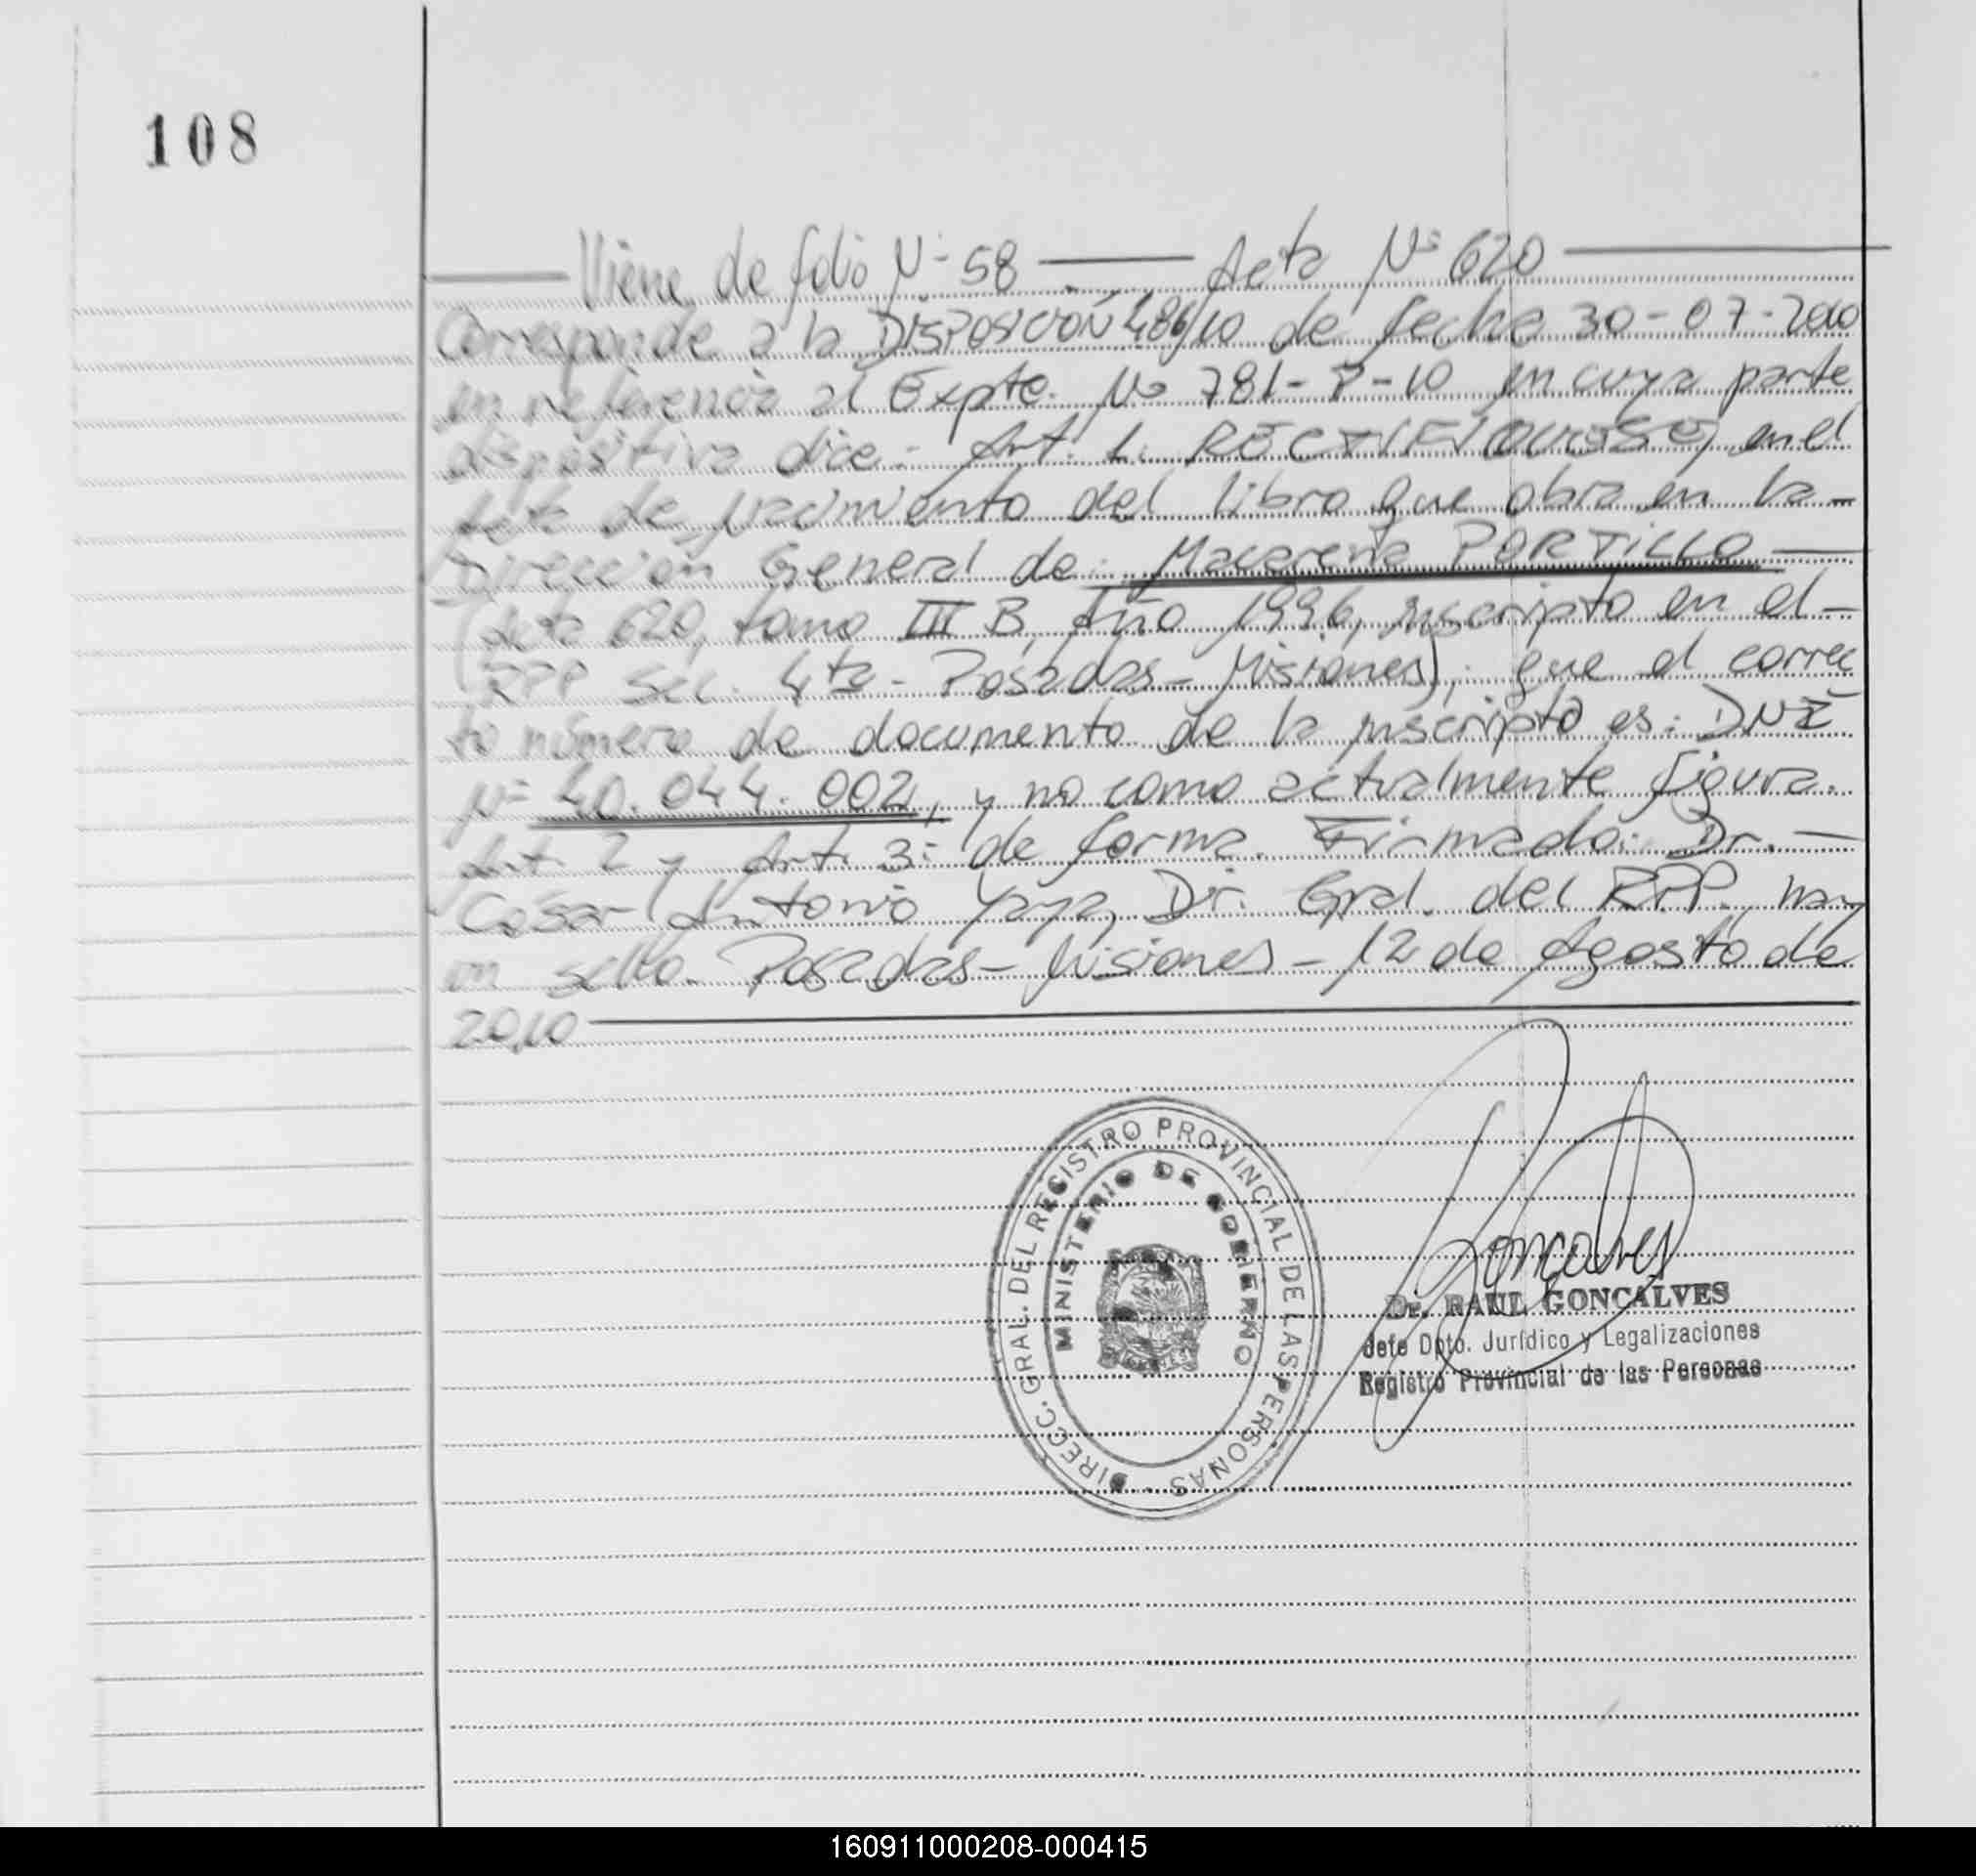 108
Viene de folio Nº 58 — Acta Nº 620
Corresponde a la DISPOSICIÓN 486/10 de fecha 30-07-2010
en referencia al Expte. Nº 781-P-10 en cuya parte
dispositiva dice: Art. 1: RECTIFIQUESE, en el
Acta de nacimiento del libro que obra en la-
Dirección General de: Macarena PORTILLO
(Acta 620, tomo III B, Año 1996, inscripto en el-
RPP Sec. 4ta - Posadas - Misiones), que el correc
to número de documento de la inscripta es: DNI
Nº 40.044.002, y no como actualmente figura.
Art. 2 y Art. 3: de forma. Firmado: Dr. -
César Antonio Yaya, Dir. Gral. del RPP. hay
un sello. Posadas - Misiones - 12 de Agosto de
2010
DIRECC. GRAL. DEL REGISTRO PROVINCIAL DE LAS PERSONAS
MINISTERIO DE GOBIERNO
Goncalves
Dr. RAUL GONCALVES
Jefe Dpto. Jurídico y Legalizaciones
Registro Provincial de las Personas
160911000208-000415